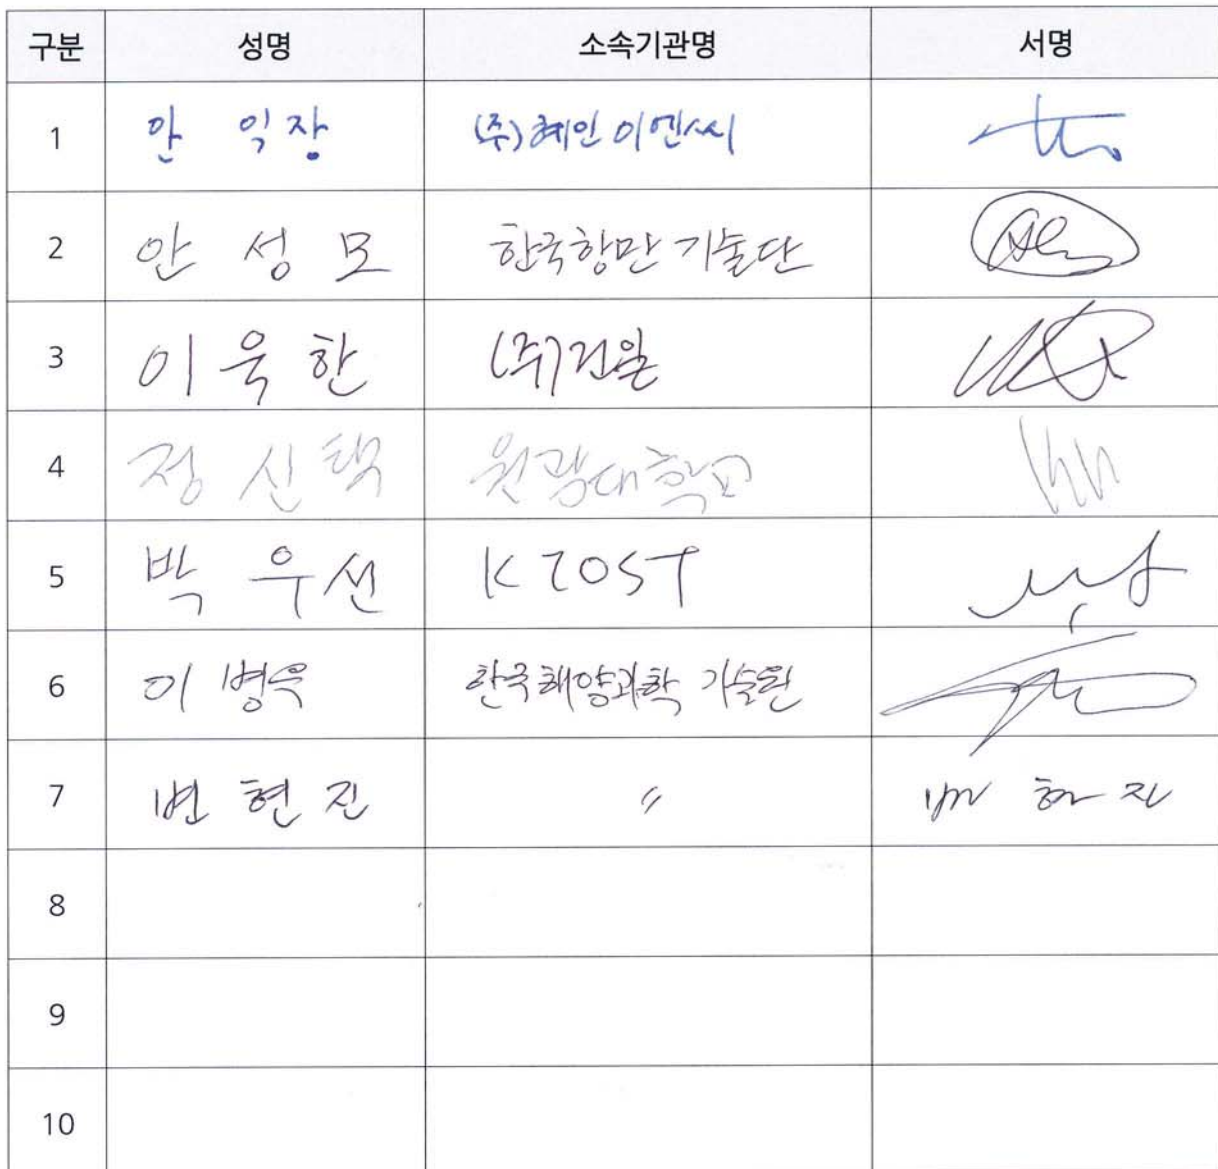 구분 성명 소속기관명 서명
1 안 익장 (주)혜인이엔씨
2 안 성 모 한국항만기술단
3 이 욱 한 (주)건일
4 정 신 택 원광대학교
5 박 우 선 KIOST
6 이 병욱 한국해양과학기술원
7 변 현 진 〃 변 현 진
8
9
10